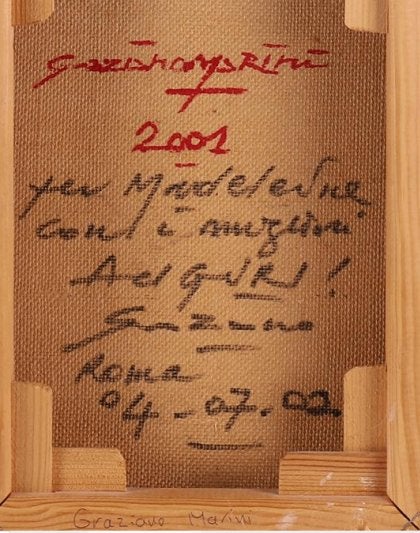 GrazianoMarini
2001
per Madeleine
con i migliori
AUGURI!
Graziano
Roma
04-07.02.
Graziano Marini